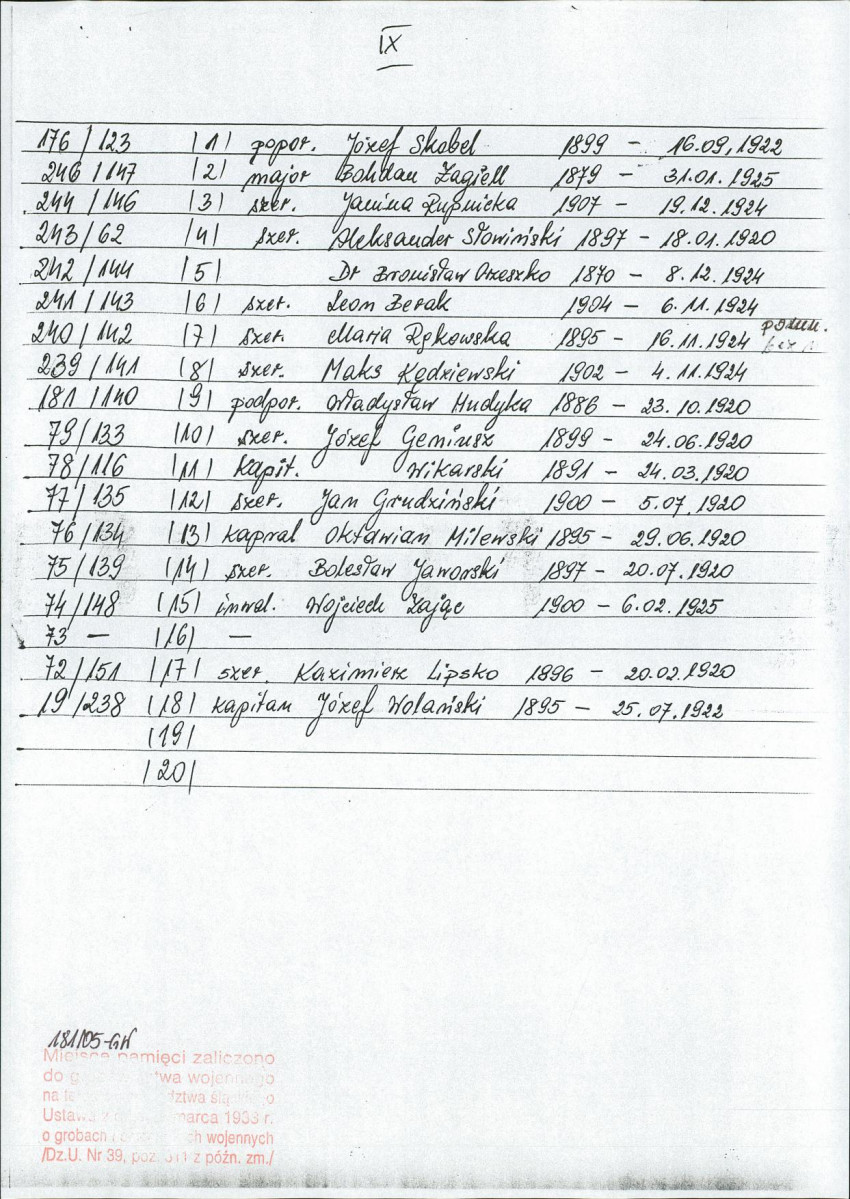 IX
176/123 /1/ popor. Józef Skobel 1899 - 16.09.1922
246/147 /2/ major Bohdan Zagiell 1879 - 31.01.1925
244/146 /3/ szer. Janina Rupnicka 1907 - 19.12.1924
243/62 /4/ szer. Aleksander Słowiński 1897 - 18.01.1920
242/144 /5/ Dr Bronisław Orzeszko 1870 - 8.12.1924
241/143 /6/ szer. Leon Berak 1904 - 6.11.1924
240/142 /7/ szer. Maria Rękowska 1895 - 16.11.1924
239/141 /8/ szer. Maks Kędziewski 1902 - 4.11.1924
181/140 /9/ podpor. Władysław Hudyka 1886 - 23.10.1920
79/133 /10/ szer. Józef Geniusz 1899 - 24.06.1920
78/116 /11/ kapit. Wikarski 1891 - 24.03.1920
77/135 /12/ szer. Jan Grudziński 1900 - 5.07.1920
76/134 /13/ kapral Oktawian Milewski 1895 - 29.06.1920
75/139 /14/ szer. Bolesław Jaworski 1897 - 20.07.1920
74/148 /15/ inwal. Wojciech Zając 1900 - 6.02.1925
73 - /16/ -
72/151 /17/ szer. Kazimierz Lipsko 1896 - 20.02.1920
19/238 /18/ kapitan Józef Wolański 1895 - 25.07.1922
/19/
/20/
181/05-GW
Miejsce pamięci zaliczono
do wojennego
na
Ustawa marca 1933 r.
o grobach i wojennych
/Dz.U. Nr 39, poz. 311 z późn. zm./